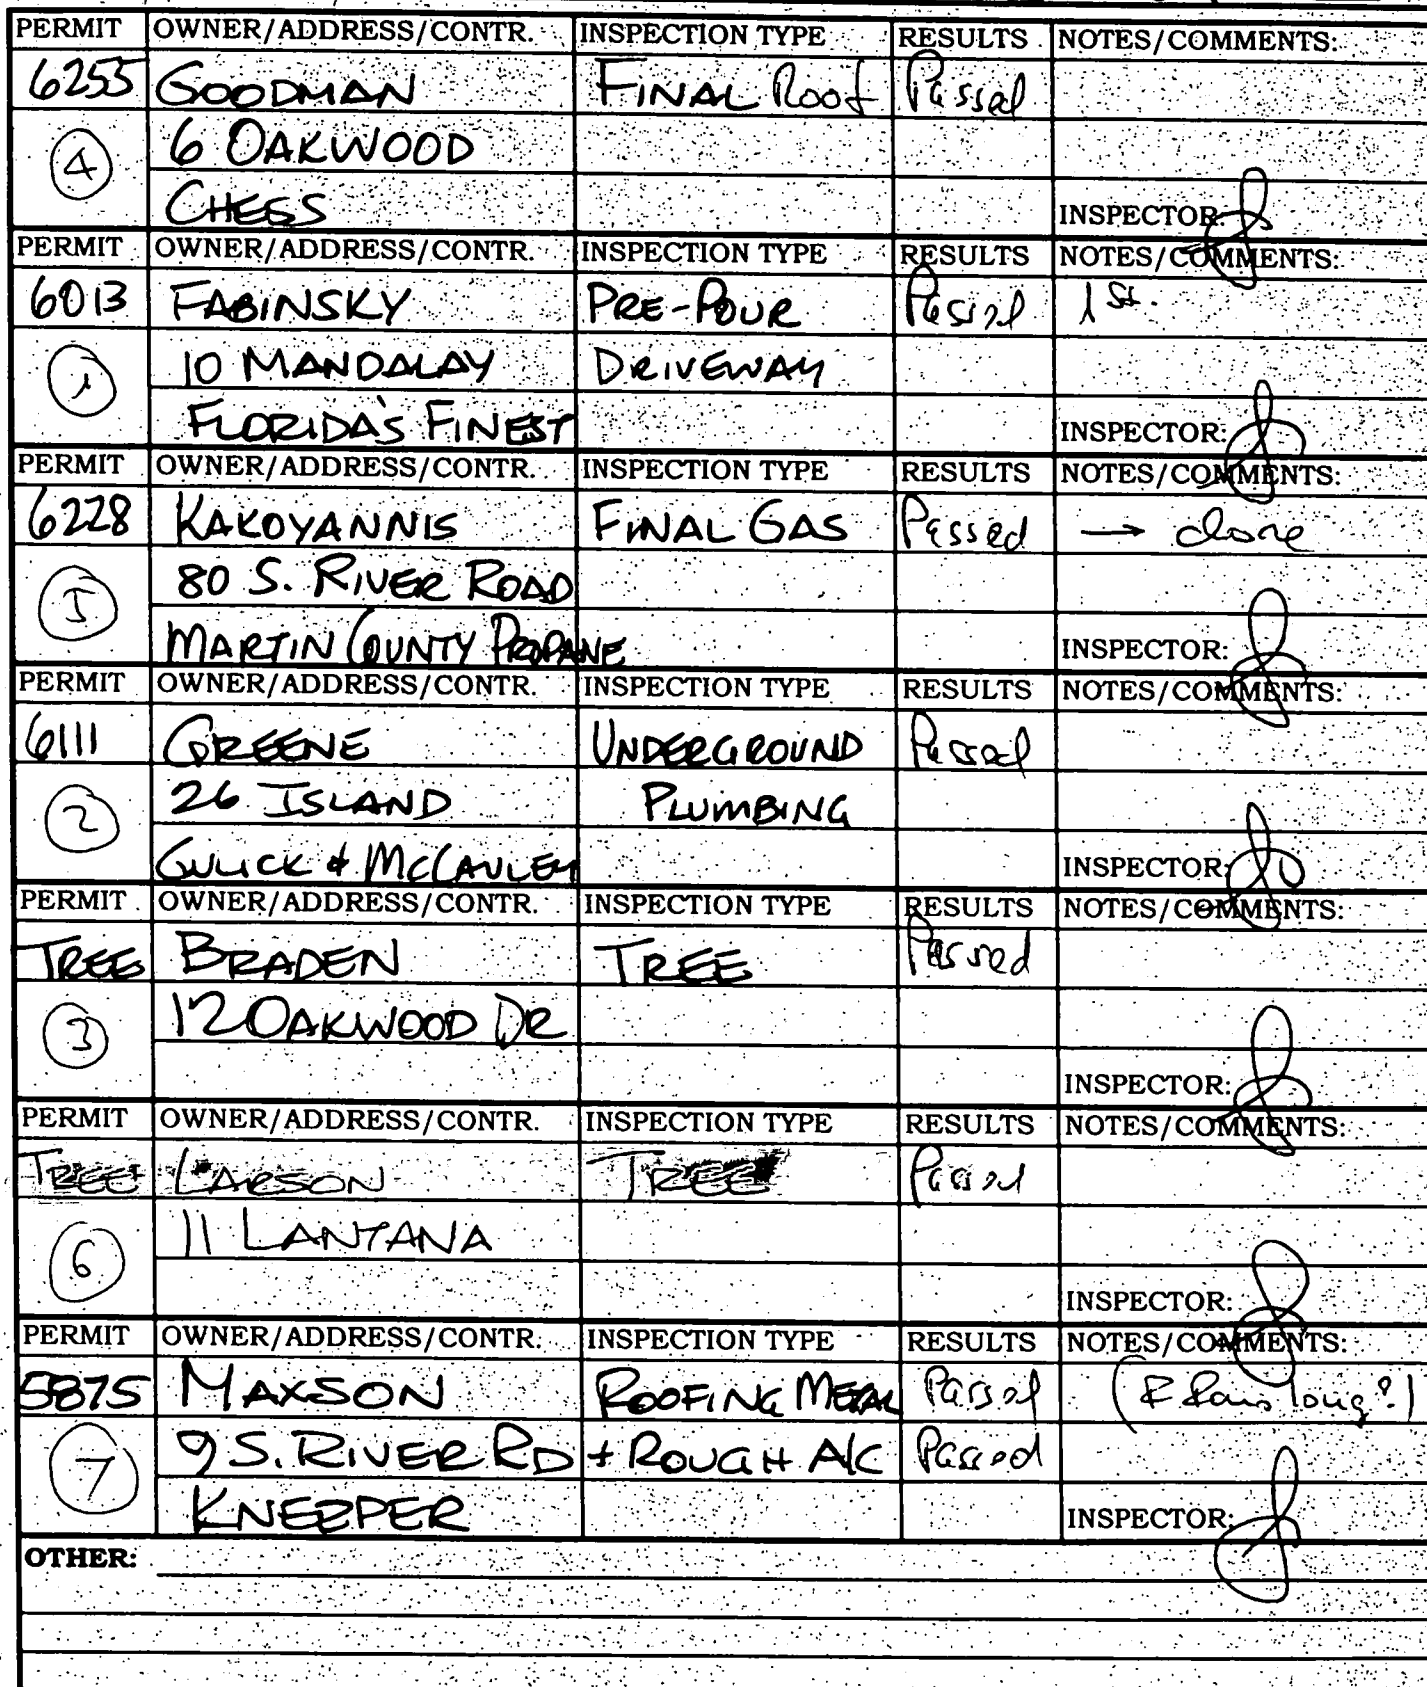 PERMIT OWNER/ADDRESS/CONTR. INSPECTION TYPE RESULTS NOTES/COMMENTS:
6255 GOODMAN FINAL Roof Passed
4 6 OAKWOOD
CHEGS INSPECTOR
PERMIT OWNER/ADDRESS/CONTR. INSPECTION TYPE RESULTS NOTES/COMMENTS:
6013 FABINSKY PRE-POUR Passed 1st.
1 10 MANDALAY DRIVEWAY
FLORIDA'S FINEST INSPECTOR:
PERMIT OWNER/ADDRESS/CONTR. INSPECTION TYPE RESULTS NOTES/COMMENTS:
6228 KAKOYANNIS FINAL GAS Passed → close
5 80 S. RIVER ROAD
MARTIN COUNTY PROPANE INSPECTOR:
PERMIT OWNER/ADDRESS/CONTR. INSPECTION TYPE RESULTS NOTES/COMMENTS:
6111 GREENE UNDERGROUND Passed
2 26 ISLAND PLUMBING
GULICK & McCAULEY INSPECTOR:
PERMIT OWNER/ADDRESS/CONTR. INSPECTION TYPE RESULTS NOTES/COMMENTS:
TREE BRADEN TREE Passed
3 12 OAKWOOD DR
INSPECTOR:
PERMIT OWNER/ADDRESS/CONTR. INSPECTION TYPE RESULTS NOTES/COMMENTS:
TREE LARSON TREE Passed
6 11 LANTANA
INSPECTOR:
PERMIT OWNER/ADDRESS/CONTR. INSPECTION TYPE RESULTS NOTES/COMMENTS:
5875 MAXSON ROOFING METAL Passed long?)
7 9 S. RIVER RD + ROUGH A/C Passed
KNEZPER INSPECTOR:
OTHER: